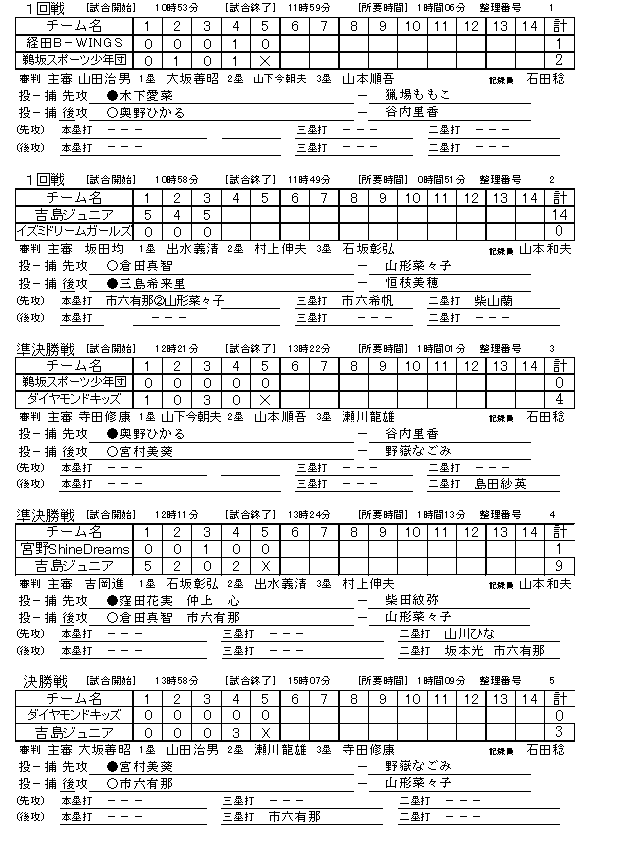 1回戦 [試合開始] 10時53分 [試合終了] 11時59分 [所要時間] 1時間06分 整理番号 1
チーム名 1 2 3 4 5 6 7 8 9 10 11 12 13 14 計
経田B-WINGS 0 0 0 1 0 1
鵜坂スポーツ少年団 0 1 0 1 X 2
審判 主審 山田治男 1塁 大坂善昭 2塁 山下今朝夫 3塁 山本順吾 記録員 石田稔
投-捕 先攻 ●木下愛菜 ー 猟場ももこ
投-捕 後攻 ○奥野ひかる ー 谷内里香
(先攻) 本塁打 --- 三塁打 --- 二塁打 ---
(後攻) 本塁打 --- 三塁打 --- 二塁打 ---
1回戦 [試合開始] 10時58分 [試合終了] 11時49分 [所要時間] 0時間51分 整理番号 2
チーム名 1 2 3 4 5 6 7 8 9 10 11 12 13 14 計
吉島ジュニア 5 4 5 14
イズミドリームガールズ 0 0 0 0
審判 主審 坂田均 1塁 出水義清 2塁 村上伸夫 3塁 石坂彰弘 記録員 山本和夫
投-捕 先攻 ○倉田真智 ー 山形菜々子
投-捕 後攻 ●三島希来里 ー 恒枝美穂
(先攻) 本塁打 市六有那②山形菜々子 三塁打 市六希帆 二塁打 柴山蘭
(後攻) 本塁打 --- 三塁打 --- 二塁打 ---
準決勝戦 [試合開始] 12時21分 [試合終了] 13時22分 [所要時間] 1時間01分 整理番号 3
チーム名 1 2 3 4 5 6 7 8 9 10 11 12 13 14 計
鵜坂スポーツ少年団 0 0 0 0 0 0
ダイヤモンドキッズ 1 0 3 0 X 4
審判 主審 寺田修康 1塁 山下今朝夫 2塁 山本順吾 3塁 瀬川龍雄 記録員 石田稔
投-捕 先攻 ●奥野ひかる ー 谷内里香
投-捕 後攻 ○宮村美葵 ー 野嶽なごみ
(先攻) 本塁打 --- 三塁打 --- 二塁打 ---
(後攻) 本塁打 --- 三塁打 --- 二塁打 島田紗英
準決勝戦 [試合開始] 12時11分 [試合終了] 13時24分 [所要時間] 1時間13分 整理番号 4
チーム名 1 2 3 4 5 6 7 8 9 10 11 12 13 14 計
宮野ShineDreams 0 0 1 0 0 1
吉島ジュニア 5 2 0 2 X 9
審判 主審 吉岡進 1塁 石坂彰弘 2塁 出水義清 3塁 村上伸夫 記録員 山本和夫
投-捕 先攻 ●窪田花実 仲上 心 ー 柴田紋弥
投-捕 後攻 ○倉田真智 市六有那 ー 山形菜々子
(先攻) 本塁打 --- 三塁打 --- 二塁打 山川ひな
(後攻) 本塁打 --- 三塁打 --- 二塁打 坂本光 市六有那
決勝戦 [試合開始] 13時58分 [試合終了] 15時07分 [所要時間] 1時間09分 整理番号 5
チーム名 1 2 3 4 5 6 7 8 9 10 11 12 13 14 計
ダイヤモンドキッズ 0 0 0 0 0 0
吉島ジュニア 0 0 0 3 X 3
審判 主審 大坂善昭 1塁 山田治男 2塁 瀬川龍雄 3塁 寺田修康 記録員 石田稔
投-捕 先攻 ●宮村美葵 ー 野嶽なごみ
投-捕 後攻 ○市六有那 ー 山形菜々子
(先攻) 本塁打 --- 三塁打 --- 二塁打 ---
(後攻) 本塁打 --- 三塁打 市六有那 二塁打 ---